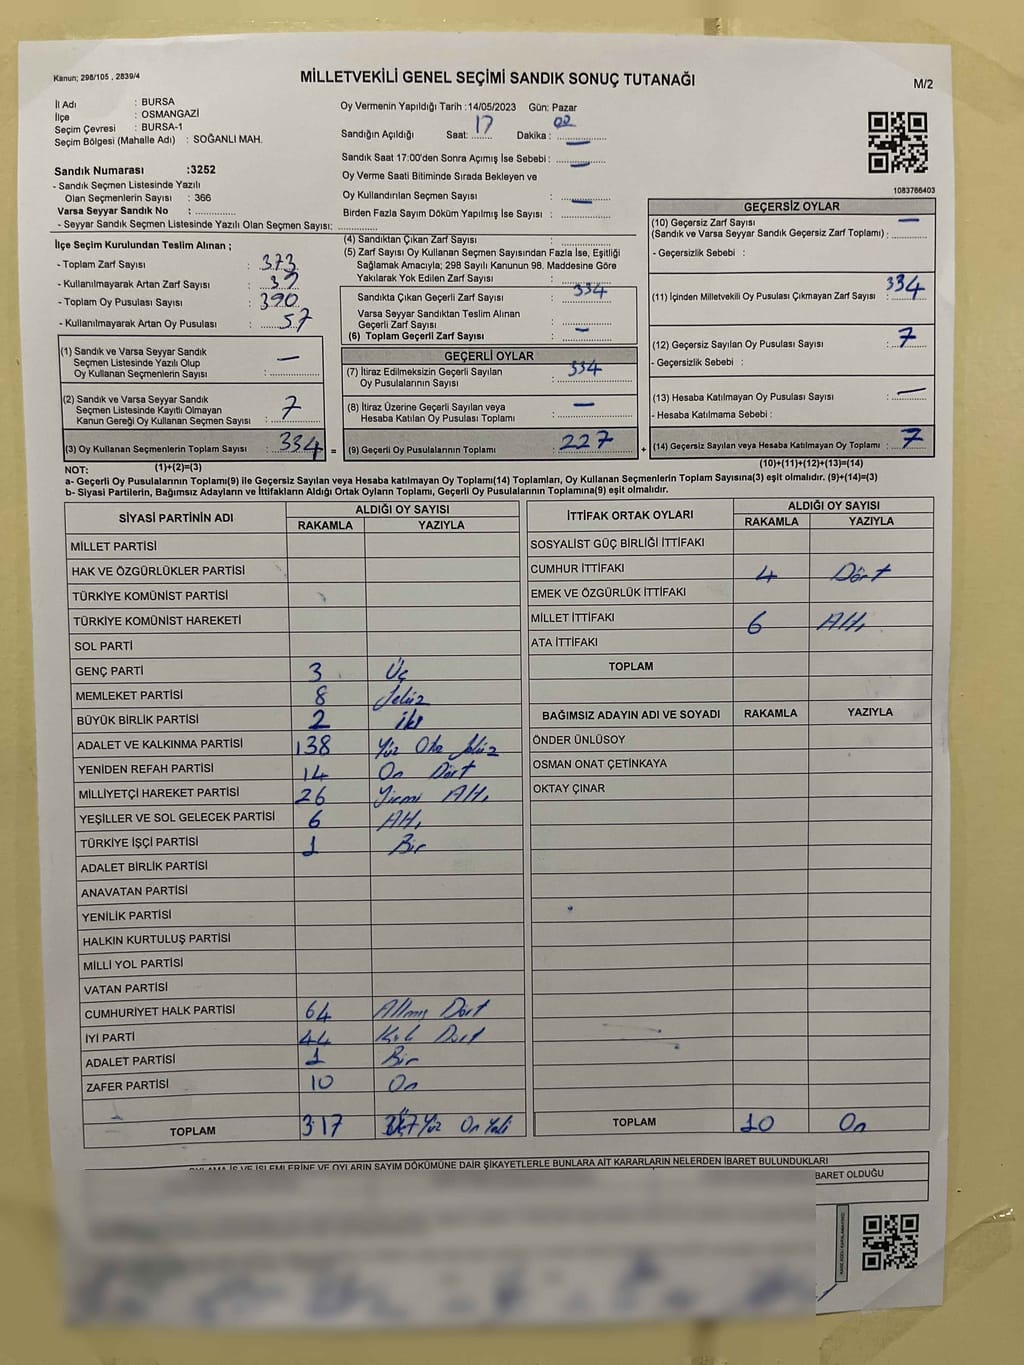 Kanun; 298/105 , 2839/4
MİLLETVEKİLİ GENEL SEÇİMİ SANDIK SONUÇ TUTANAĞI
M/2
İl Adı : BURSA
İlçe : OSMANGAZİ
Seçim Çevresi : BURSA-1
Seçim Bölgesi (Mahalle Adı) : SOĞANLI MAH.
Sandık Numarası :3252
- Sandık Seçmen Listesinde Yazılı
Olan Seçmenlerin Sayısı : 366
Varsa Seyyar Sandık No :
- Seyyar Sandık Seçmen Listesinde Yazılı Olan Seçmen Sayısı:
Oy Vermenin Yapıldığı Tarih :14/05/2023 Gün: Pazar
Sandığın Açıldığı Saat: 17 Dakika : 00
Sandık Saat 17:00'den Sonra Açımış İse Sebebi : —
Oy Verme Saati Bitiminde Sırada Bekleyen ve
Oy Kullandırılan Seçmen Sayısı : —
Birden Fazla Sayım Döküm Yapılmış İse Sayısı :
1083766403
İlçe Seçim Kurulundan Teslim Alınan ;
- Toplam Zarf Sayısı : 373
- Kullanılmayarak Artan Zarf Sayısı : 39
- Toplam Oy Pusulası Sayısı : 390
- Kullanılmayarak Artan Oy Pusulası : 57
(1) Sandık ve Varsa Seyyar Sandık
Seçmen Listesinde Yazılı Olup
Oy Kullanan Seçmenlerin Sayısı : —
(2) Sandık ve Varsa Seyyar Sandık
Seçmen Listesinde Kayıtlı Olmayan
Kanun Gereği Oy Kullanan Seçmen Sayısı : 7
(3) Oy Kullanan Seçmenlerin Toplam Sayısı : 334 =
(4) Sandıktan Çıkan Zarf Sayısı :
(5) Zarf Sayısı Oy Kullanan Seçmen Sayısından Fazla İse, Eşitliği
Sağlamak Amacıyla; 298 Sayılı Kanunun 98. Maddesine Göre
Yakılarak Yok Edilen Zarf Sayısı :
Sandıkta Çıkan Geçerli Zarf Sayısı : 334
Varsa Seyyar Sandıktan Teslim Alınan
Geçerli Zarf Sayısı :
(6) Toplam Geçerli Zarf Sayısı : —
GEÇERLİ OYLAR
(7) İtiraz Edilmeksizin Geçerli Sayılan
Oy Pusulalarının Sayısı : 334
(8) İtiraz Üzerine Geçerli Sayılan veya
Hesaba Katılan Oy Pusulası Toplamı : —
(9) Geçerli Oy Pusulalarının Toplamı : 227 +
GEÇERSİZ OYLAR
(10) Geçersiz Zarf Sayısı
(Sandık ve Varsa Seyyar Sandık Geçersiz Zarf Toplamı) : —
- Geçersizlik Sebebi :
(11) İçinden Milletvekili Oy Pusulası Çıkmayan Zarf Sayısı : 334
(12) Geçersiz Sayılan Oy Pusulası Sayısı : 7
- Geçersizlik Sebebi :
(13) Hesaba Katılmayan Oy Pusulası Sayısı : —
- Hesaba Katılmama Sebebi :
(14) Geçersiz Sayılan veya Hesaba Katılmayan Oy Toplamı : 7
NOT: (1)+(2)=(3) (10)+(11)+(12)+(13)=(14)
a- Geçerli Oy Pusulalarının Toplamı(9) ile Geçersiz Sayılan veya Hesaba katılmayan Oy Toplamı(14) Toplamları, Oy Kullanan Seçmenlerin Toplam Sayısına(3) eşit olmalıdır. (9)+(14)=(3)
b- Siyasi Partilerin, Bağımsız Adayların ve İttifakların Aldığı Ortak Oyların Toplamı, Geçerli Oy Pusulalarının Toplamına(9) eşit olmalıdır.
SİYASİ PARTİNİN ADI ALDIĞI OY SAYISI
RAKAMLA YAZIYLA
MİLLET PARTİSİ
HAK VE ÖZGÜRLÜKLER PARTİSİ
TÜRKİYE KOMÜNİST PARTİSİ
TÜRKİYE KOMÜNİST HAREKETİ
SOL PARTİ
GENÇ PARTİ 3 Üç
MEMLEKET PARTİSİ 8 Sekiz
BÜYÜK BİRLİK PARTİSİ 2 iki
ADALET VE KALKINMA PARTİSİ 138 Yüz Otuz Sekiz
YENİDEN REFAH PARTİSİ 14 On Dört
MİLLİYETÇİ HAREKET PARTİSİ 26 Yirmi Altı
YEŞİLLER VE SOL GELECEK PARTİSİ 6 Altı
TÜRKİYE İŞÇİ PARTİSİ 1 Bir
ADALET BİRLİK PARTİSİ
ANAVATAN PARTİSİ
YENİLİK PARTİSİ
HALKIN KURTULUŞ PARTİSİ
MİLLİ YOL PARTİSİ
VATAN PARTİSİ
CUMHURİYET HALK PARTİSİ 64 Altmış Dört
İYİ PARTİ 44 Kırk Dört
ADALET PARTİSİ 1 Bir
ZAFER PARTİSİ 10 On
TOPLAM 317 Üç Yüz On Yedi
İTTİFAK ORTAK OYLARI ALDIĞI OY SAYISI
RAKAMLA YAZIYLA
SOSYALİST GÜÇ BİRLİĞİ İTTİFAKI
CUMHUR İTTİFAKI 4 Dört
EMEK VE ÖZGÜRLÜK İTTİFAKI
MİLLET İTTİFAKI 6 Altı
ATA İTTİFAKI
TOPLAM
BAĞIMSIZ ADAYIN ADI VE SOYADI RAKAMLA YAZIYLA
ÖNDER ÜNLÜSOY
OSMAN ONAT ÇETİNKAYA
OKTAY ÇINAR
TOPLAM 10 On
OYLAMA İŞ VE İŞLEMLERİNE VE OYLARIN SAYIM DÖKÜMÜNE DAİR ŞİKAYETLERLE BUNLARA AİT KARARLARIN NELERDEN İBARET BULUNDUKLARI
BARET OLDUĞU